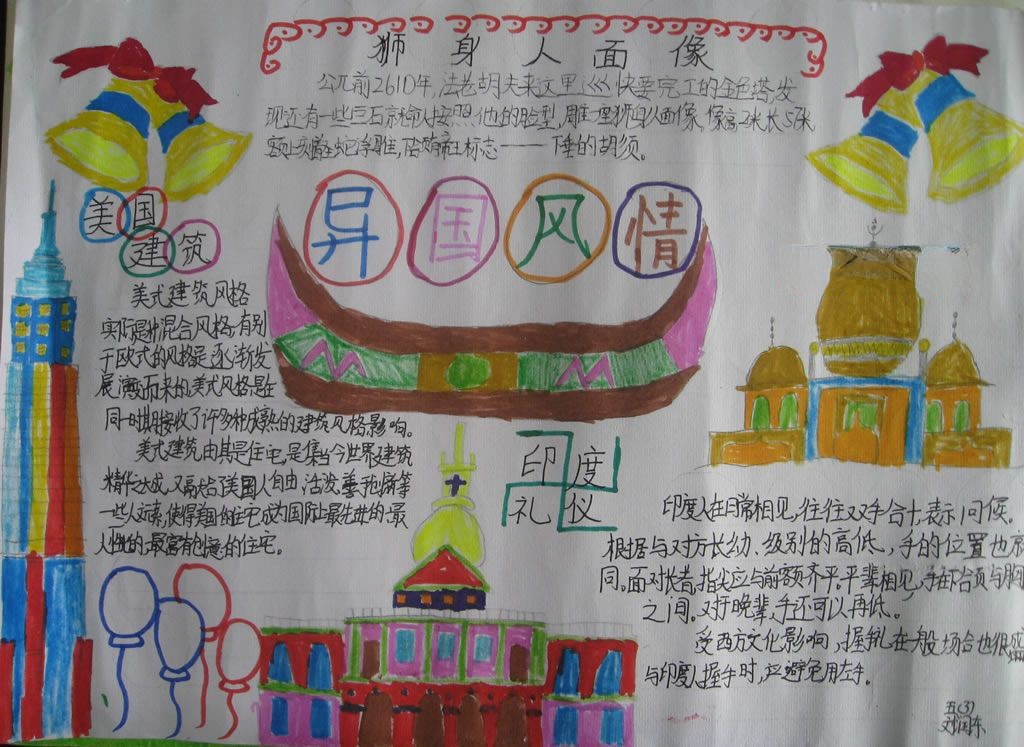 狮身人面像
公元前2610年,法老胡夫来这里巡 快要完工的金色塔,发
现还有一些巨石 按照他的脸型,雕 狮 面像,像高 米长5 米
额上 蛇 标志——下垂的胡须。
异国风情
美国
建筑
美式建筑风格
实际是种混合风格,有别
于欧式的风格是逐渐发
展 而来的美式风格是在
同一时期接收了许多种成熟的建筑风格影响。
美式建筑尤其是住宅,是集当今世界建筑
精华大成,又融合了美国人自由,活发,善 等
一些人文 素,使得美国 住宅成为国际上最先进的,最
人性的,最富 的住宅。
印度
礼仪
印度人在日常相见,往往双手合十,表示问候。
根据与对方长幼、级别的高低,手的位置也 
同。面对长者,指尖应与前额齐平。平辈相见,手 与胸
之间。对于晚辈,手还可以再低。
受西方文化影响,握手礼在一般场合也很
与印度人握手时,应避免用左手。
五(3)